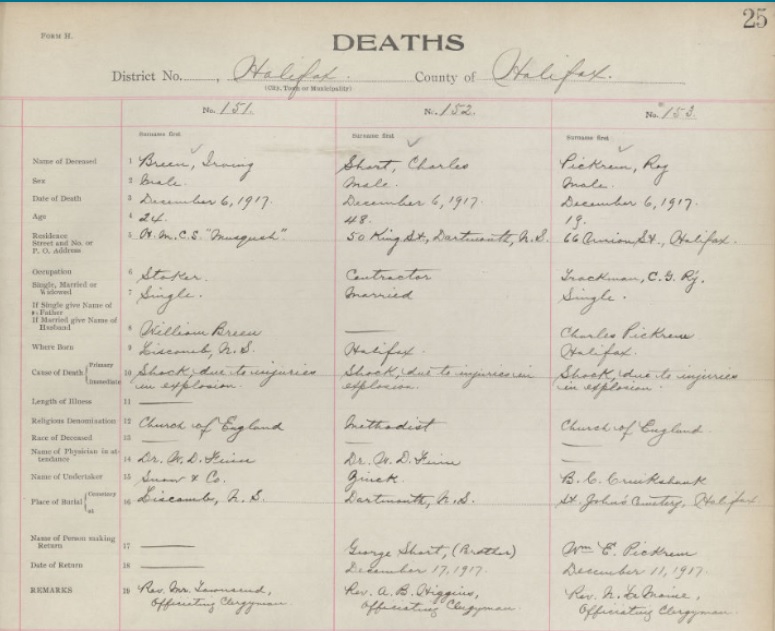 25
FORM H.
DEATHS
District No. , Halifax. County of Halifax.
(City, Town or Municipality)
No. 151. No. 152. No. 153.
Surname first Surname first Surname first
Name of Deceased 1 Breen, Irving Short, Charles Pickrem, Roy
Sex 2 Male. Male. Male.
Date of Death 3 December 6, 1917. December 6, 1917. December 6, 1917.
Age 4 24. 48. 19.
Residence 5 H.M.C.S. "Musquash" 50 King St, Dartmouth, N.S. 66 St., Halifax.
Street and No. or
P. O. Address
Occupation 6 Stoker. Contractor Trackman, C.G. Ry.
Single, Married or 7 Single. Married Single.
Widowed
If Single give Name of
Father
If Married give Name of
Husband 8 William Breen Charles Pickrem
Where Born 9 Liscomb, N.S. Halifax. Halifax.
Cause of Death Primary Immediate 10 Shock, due to injuries Shock, due to injuries in Shock, due to injuries
in explosion. explosion. in explosion.
Length of Illness 11
Religious Denomination 12 Church of England Methodist Church of England
Race of Deceased 13
Name of Physician in at-
tendance 14 Dr. W. D. Finn Dr. W. D. Finn
Name of Undertaker 15 Snow & Co. Zinck. B. C. Cruikshank
Place of Burial Cemetery at 16 Liscomb, N.S. Dartmouth, N.S. St. John's Cemetery, Halifax
Name of Person making
Return 17 George Short, (Brother) Wm E. Pickrem
Date of Return 18 December 17, 1917. December 11, 1917.
REMARKS 19 Rev. Mr. Townsend, Rev. A. B. Higgins, Rev. N. LeMoine,
Officiating Clergyman. Officiating Clergyman. Officiating Clergyman.